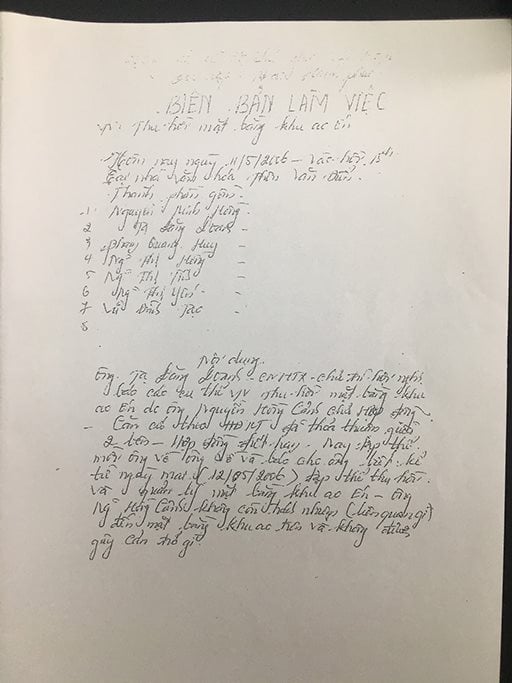 BIÊN BẢN LÀM VIỆC
V/v Thu hồi mặt bằng khu ao Én
Hôm nay ngày 11/5/2006 - Vào hồi 15h
Tại nhà văn hóa thôn Văn
Thành phần gồm
1 Nguyễn Minh Hồng
2 Tạ Đăng Doanh -
3 Quang Huy -
4 Ngô Thị Hồng -
5 Ngô Thị -
6 Ngô Thị Yến -
7 Vũ Đình Tạc -
8
Nội dung
Ông Tạ Đăng Doanh - CNHTX - chủ trì hội nghị
báo cáo cụ thể V/v thu hồi mặt bằng khu
ao Én do ông Nguyễn Hồng Cảnh chủ Hợp đồng
- Căn cứ theo HĐKT đã thỏa thuận giữa
2 bên - Hợp đồng hết hạn. Nay tập thể
mời ông về và báo cho ông biết: kể
từ ngày mai (12/05/2006) tập thể thu hồi
và quản lý mặt bằng khu ao Én - ông
Ng Hồng Cảnh không còn trách nhiệm (liên quan gì)
đến mặt bằng khu ao trên và không được
gây cản trở gì